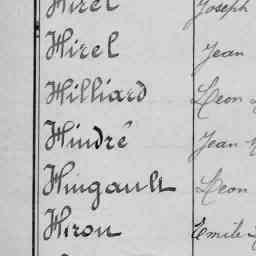 Hirel Joseph
Hirel Jean
Hilliard Leon
Hindré Jean
Hingault Leon
Hiron Emile